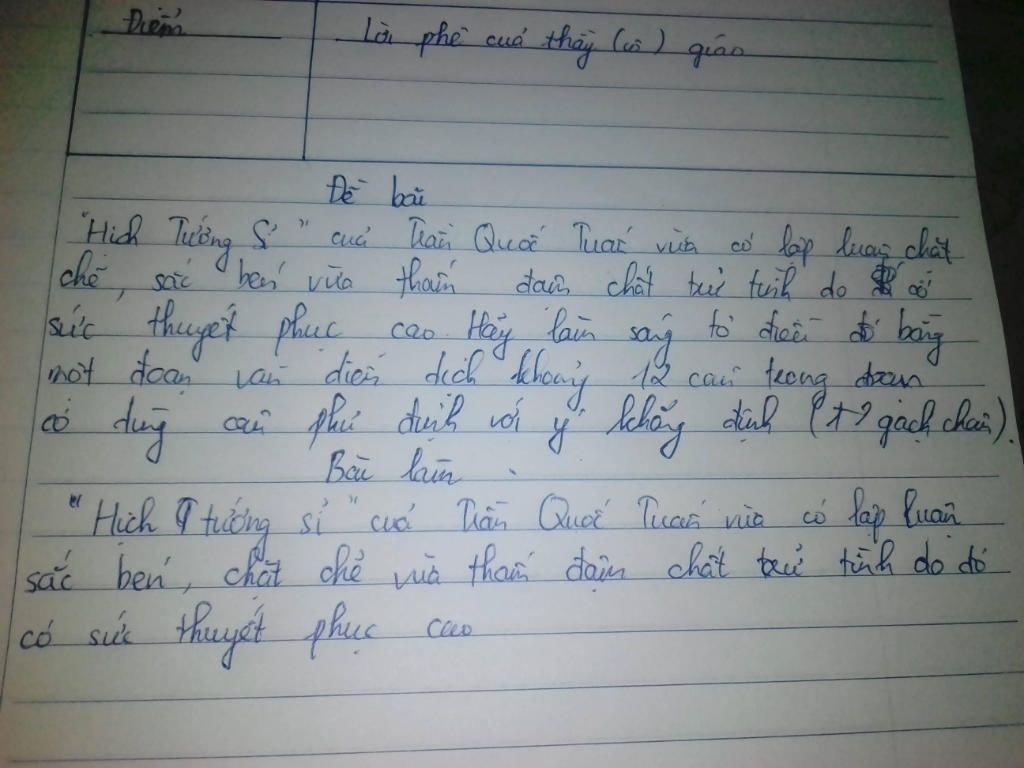 Điểm
Lời phê của thầy (cô) giáo
Đề bài
"Hịch Tướng Sĩ" của Trần Quốc Tuấn vừa có lập luận chặt
chẽ, sắc bén vừa thấm đẫm chất trữ tình do có
sức thuyết phục cao Hãy làm sáng tỏ điều đó bằng
một đoạn văn diễn dịch khoảng 12 câu trong đoạn
có dùng câu phủ định với ý khẳng định ( gạch chân).
Bài làm
"Hịch tướng sĩ" của Trần Quốc Tuấn vừa có lập luận
sắc bén, chặt chẽ vừa thấm đậm chất trữ tình do đó
có sức thuyết phục cao